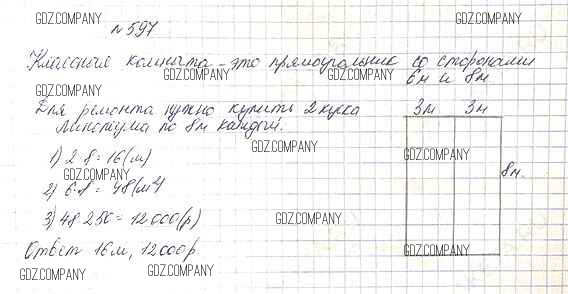 № 597
Классная комната - это прямоугольник со сторонами
6м и 8м
Для ремонта нужно купить 2 куска
линолеума по 8м каждый.
3м 3м
8м.
1) 2·8=16(м)
2) 6·8=48(м²)
3) 48·250=12000(р)
Ответ 16м, 12000р.
GDZ.COMPANY
GDZ.COMPANY
GDZ.COMPANY
GDZ.COMPANY
GDZ.COMPANY
GDZ.COMPANY
GDZ.COMPANY
GDZ.COMPANY
GDZ.COMPANY
GDZ.COMPANY
GDZ.COMPANY
GDZ.COMPANY
GDZ.COMPANY